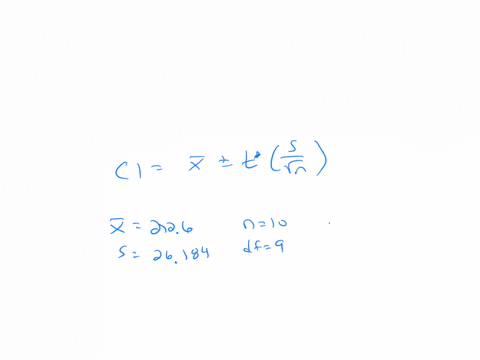 CI = x̄ ± t* (s/√n)
x̄ = 212.6 n=10
s = 26.184 df=9